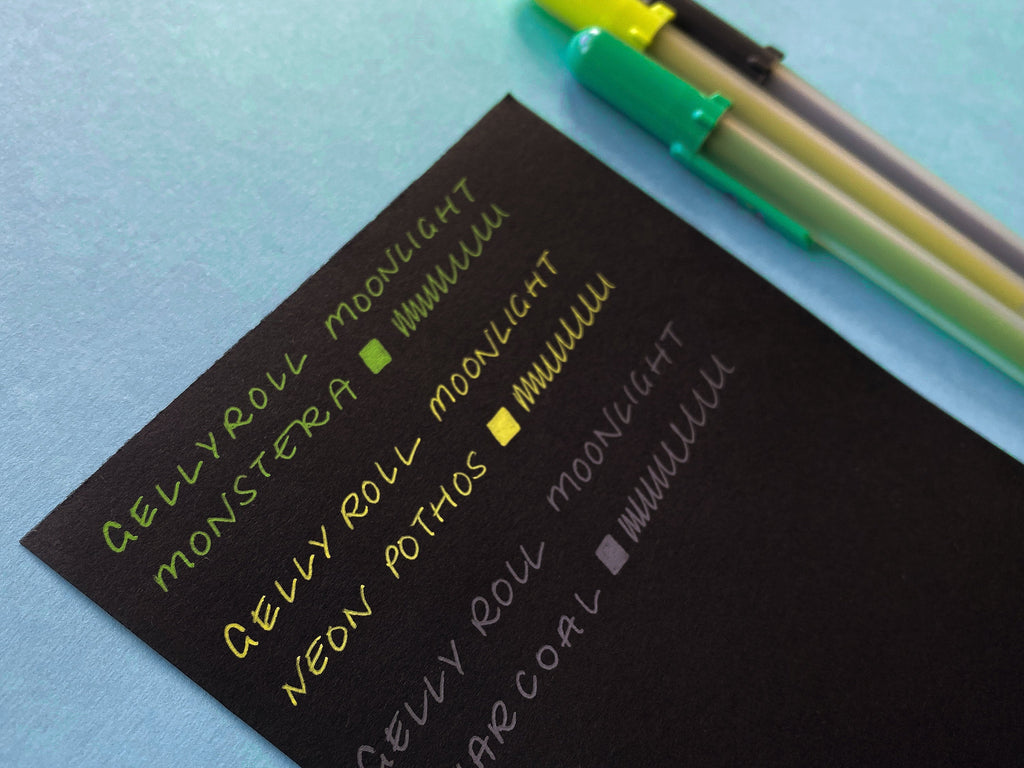 GELLYROLL MOONLIGHT
MONSTERA
GELLY ROLL MOONLIGHT
NEON POTHOS
GELLY ROLL MOONLIGHT